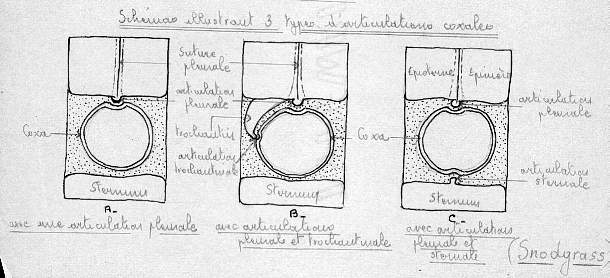 Schémas illustrant 3 types d'articulations coxales
Suture pleurale
articulation pleurale
trochantin
articulation trochantinale
Coxa
Sternum
A-
avec une articulation pleurale
Coxa
Sternum
B-
avec articulations pleurale et trochantinale
Episterne
Epimère
articulation pleurale
articulation sternale
Sternum
C-
avec articulations pleurale et sternale
(Snodgrass